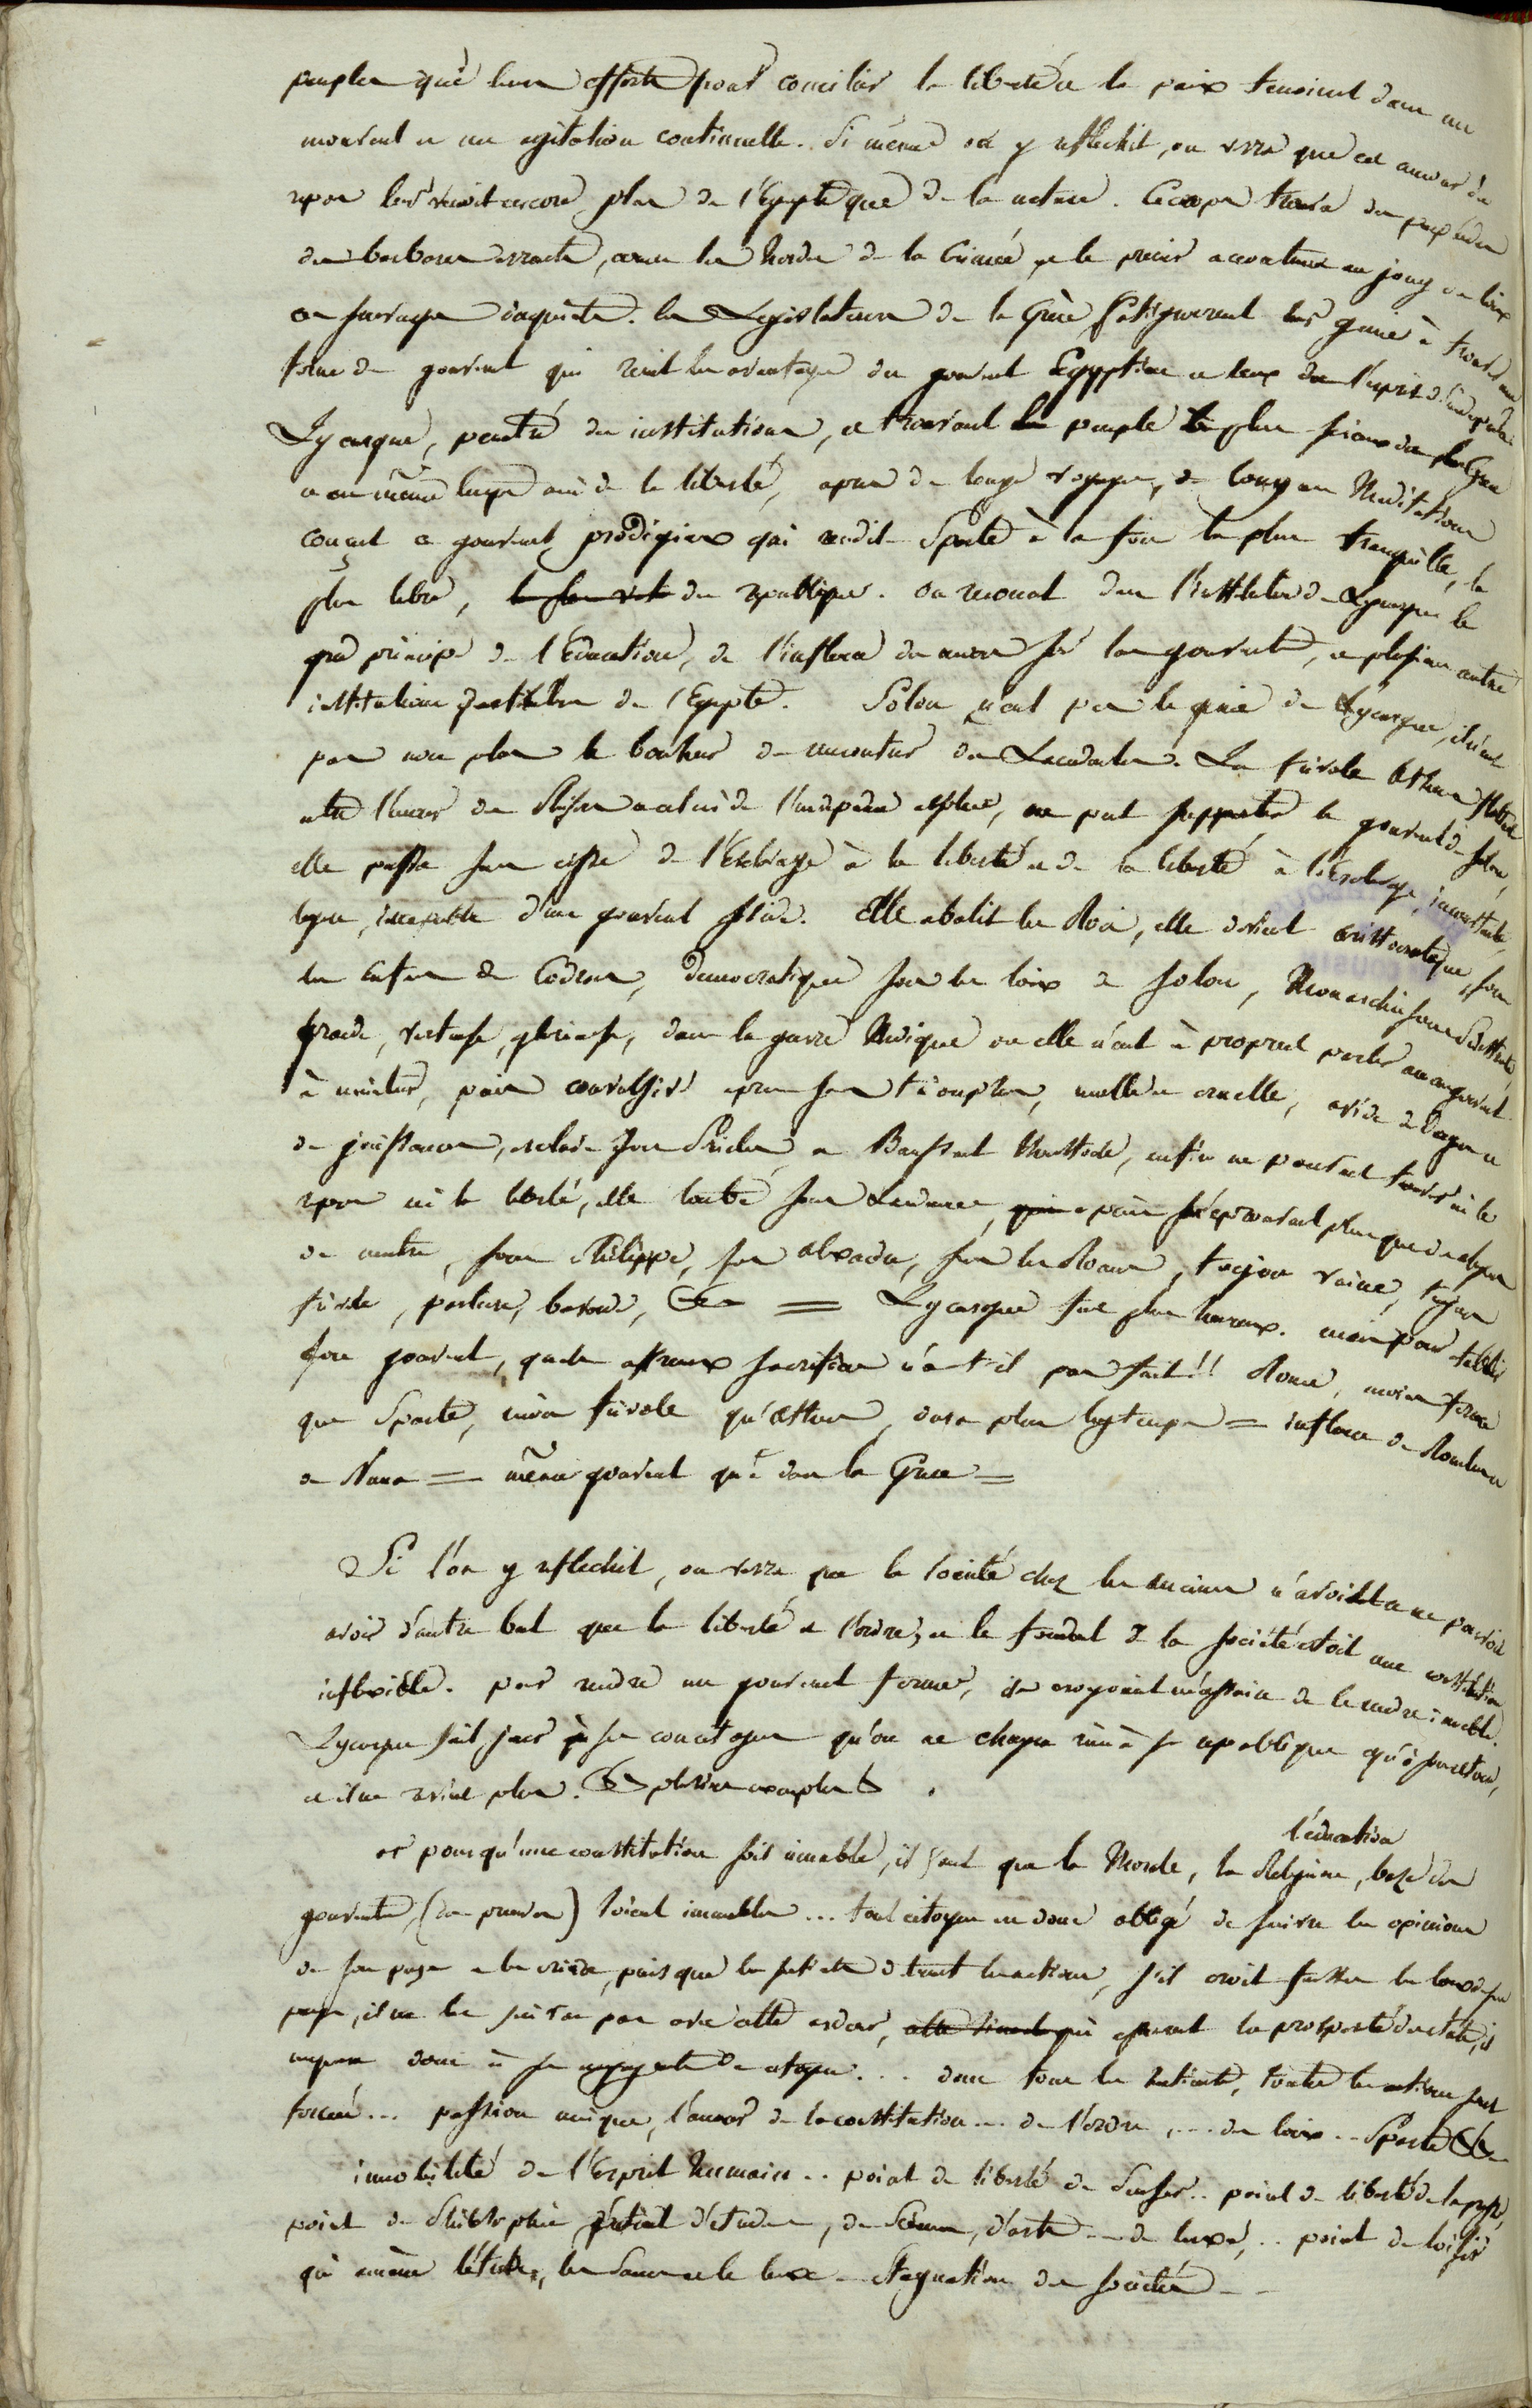 peuples que leurs efforts pour concilier la liberté et la paix tenoient dans un
mouvent et une agitation continuelle. Si même on y reflechit, on verra que cet amour du
repos leur venoit encore plus de l'Egypte que de la nature. Cecrops trouva des
des barbares errants, comme les hordes de la Crimée, et le premier accoutuma au joug des loix
ces sauvages inquiets. les Legislateurs de la Grèce fatiguerent leur genie à trouver une
forme de gouvernt qui réunit les avantages du gouvernt Egyptien et ceux de l'esprit d'independance
Lycurgue, penetré des institutions, et trouvant le peuple le plus serieux de la Grece
et en même temps ami de la liberté, apres de longs voyages, de longues Meditations
conçut ce gouvernt prodigieux qui rendit Sparte à la fois la plus tranquille, la
plus libre, des republiques. on reconoit dans l'institution de Lycurgue le
grd principe de l'Education, de l'influence des mœurs sur les gouvernts, et plusieurs autres
institutions de l'Egypte. Solon n'eut pas le genie de Lycurgue, il n'eut
pas non plus le bonheur de rencontrer des Lacedem. La frivole Athenes flottant
entre l'amour du plaisir et celui de l'independance, ne put supporter le gouvernt de Solon,
elle passa sans cesse de l'Esclavage à la liberté et de la liberté à l'esclavage, inconstante,
legere, incapable d'un gouvernt fixe. Elle abolit les Rois, elle devient aristocratique sous
les Enfans de Codrus, democratique sous les loix de Solon, Monarchie sous Pisistrate,
grande, vertueuse, glorieuse, dans la guerre Medique ou elle n'eut à proprement parler aucun gouvernt
à imiter, puis apres ses triomphes, molle et cruelle, avide de et
de jouissances, esclave sous Pericles, en Bannissant Aristide, enfin ne pouvant trouver ni le
repos ni la liberté, elle tombe sous Lisandre, n'eprouvant plus que
de maitre, sous Philippe, sous Alexandre, sous les Romains, toujours vaine, toujours
frivole, parleuse, bavarde, &c = Lycurgue fut plus heureux. mais pour etablir
son gouvernt, quels affreux sacrifices n'a-t-il pas fait!! Rome, moins ferme
que Sparte, moins frivole qu'Athenes, dura plus longtemps = influence de Romulus
et Numa = même gouvernt que dans la Grece =
Si l'on y reflechit, on verra que la société chez les anciens n'avoit et ne pouvoit
avoir d'autre but que la liberté et l'ordre; et le fondemt de la société etoit une constitution
inflexible. pour rendre un gouvernt ferme, ils croyoient nécessaire de le rendre immobile.
Lycurgue fait jurer à ses concitoyens qu'on ne changera rien à sa republique qu'à son retour,
et il ne revient plus. &c plusieurs exemples &c.
l'éducation
or pour qu'une constitution soit immobile, il faut que la Morale, la Religion, base des
gouvernts, (des preuves) soient immobiles ... tout citoyen est donc obligé de suivre les opinions
de son pays et les croire, puisque les sentimts dictent les actions, s'il croit fausses les loix de son
pays, il ne les suivra pas avec cette ardeur, qui la prosperité des etats, il
manquera donc à ses de citoyen ... donc tous les sentimts, toutes les actions sont
forcées ... passion unique, l'amour de la constitution ... de l'ordre, ... des loix .. Sparte &c
immobilité de l'Esprit humain .. point de liberté de Penser .. point de liberté de la presse,
point de Philosophie point d'etudes, de Sciences, d'arts -- de luxe, .. point de loisir
qui amène l'etude, les sciences et le luxe - Stagnation des sociétés - -